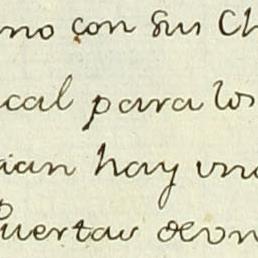 no con sus Ch
cal para los
ian hay una
Puertas